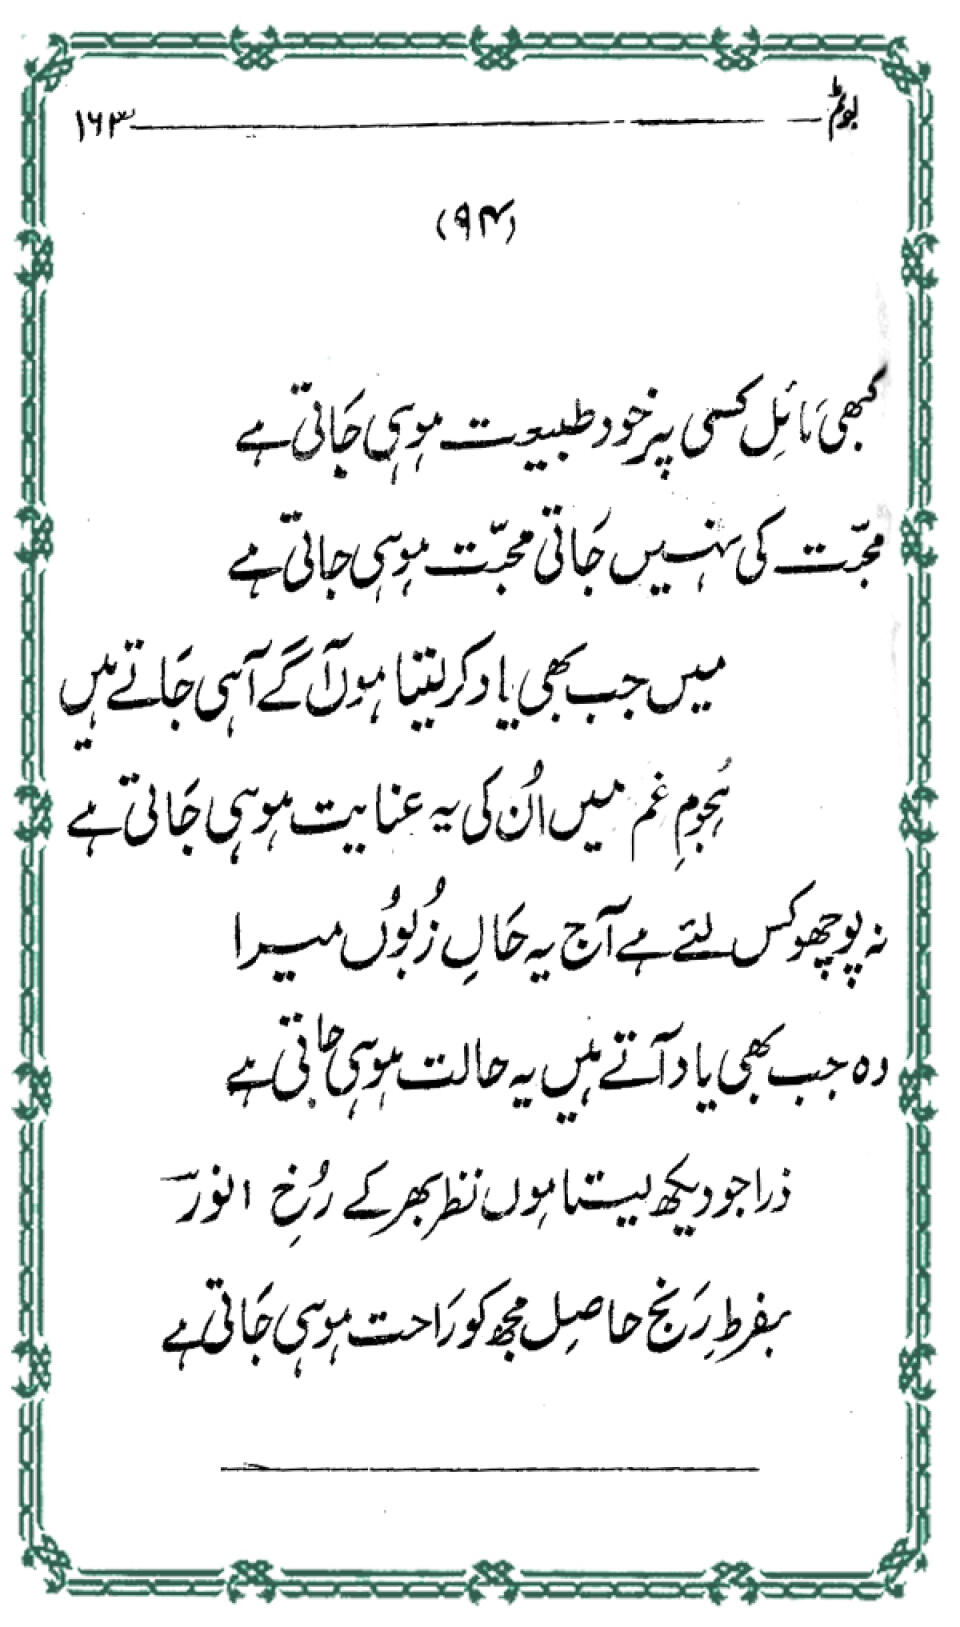 بوئم ۱۶۳
(۹۴)
کبھی مَائِل کسی پہ خود طبیعت ہو ہی جَاتی ہے
محبّت کی نہیں جَاتی محبّت ہو ہی جاتی ہے
میں جب بھی یاد کر لیتا ہوں آگے آ ہی جَاتے ہیں
ہُجومِ غم میں اُن کی یہ عنایت ہو ہی جَاتی ہے
نہ پوچھو کس لئے ہے آج یہ حَالِ زُبُوں میرا
وہ جب بھی یاد آتے ہیں یہ حالت ہو ہی جاتی ہے
ذرا جو دیکھ لیتا ہوں نظر بھر کے رُخِ انور
بفرطِ رَنج حاصِل مجھ کو رَاحت ہو ہی جَاتی ہے